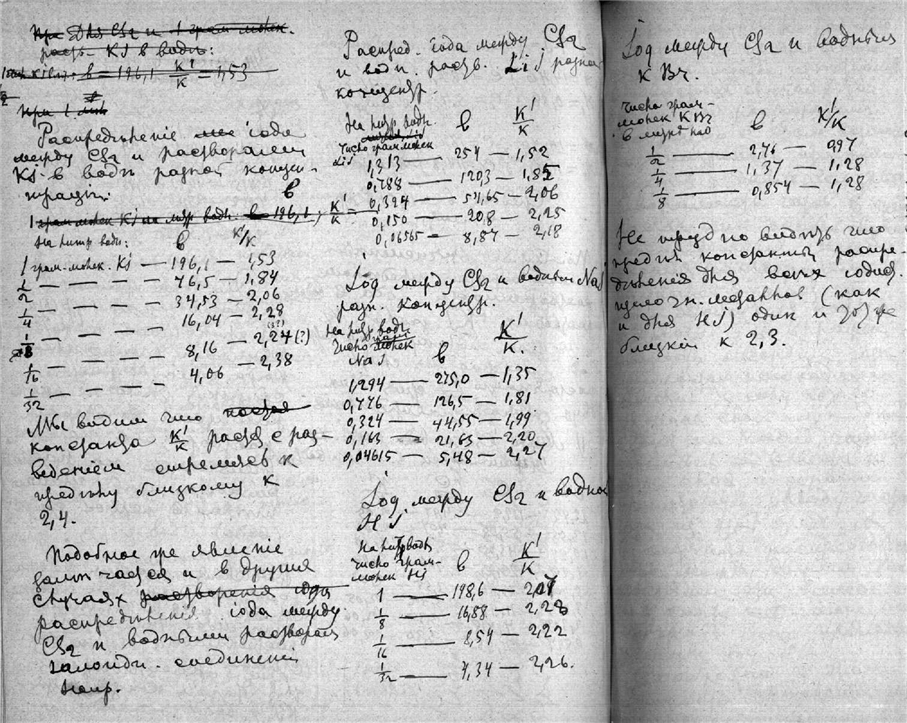 При Для CS₂ и 1 грам-молек.
раств. KJ в воды:
в = 196,1 K'/K = 1,53
При 1
Распредѣленіе іода
между CS₂ и растворами
KJ в водѣ разной концен-
траціи. в
1 грам-молек KJ на литр воды. в = 196,1, K'/K =
На литр воды: в K'/K
1 грам.-молек. KJ — 196,1 — 1,53
1/2 — — — 76,5 — 1,84
1/4 — — — 34,53 — 2,06
1/8 — — — 16,04 — 2,28
1/16 — — — 8,16 — 2,24 (?)
1/32 — — — 4,06 — 2,38
Мы видим что
константа K'/K раств с раз-
ведением стремится к
пределу близкому к
2,4.
Подобное же явленіе
замѣчается и в других
случаях растворенія іода
распредѣленія іода между
CS₂ и водными растворами
галоидн. соединеній
напр.
Распред. іода между CS₂
и водн. раств. LiJ разной
концентр.
На литр воды
число грам-молек
LiJ в K'/K
1,313 — 254 — 1,52
0,788 — 120,3 — 1,85
0,324 — 51,65 — 2,06
0,150 — 20,8 — 2,25
0,06565 — 8,87 — 2,18
Іод между CS₂ и водным NaJ
разн. концентр.
На литр воды
число молек
NaJ в K'/K.
1,294 — 275,0 — 1,35
0,776 — 126,5 — 1,81
0,324 — 44,55 — 1,99
0,163 — 21,63 — 2,20
0,04615 — 5,48 — 2,27
Іод между CS₂ и водной
HJ.
На литр воды
число грам-
молек HJ в K'/K
1 — 198,6 — 2,07
1/8 — 16,88 — 2,23
1/16 — 8,54 — 2,22
1/32 — 4,34 — 2,26.
Іод между CS₂ и водным
K Br.
Число грам-
молек KBr
в литрѣ вод в K'/K
1/2 — 2,76 — 997
1/4 — 1,37 — 1,28
1/8 — 0,854 — 1,28
Не трудно видѣть что
предѣл константы распре-
дѣленія для всех іодист.
щелочн. металлов (как
и для HJ) один и тот же
близкій к 2,3.